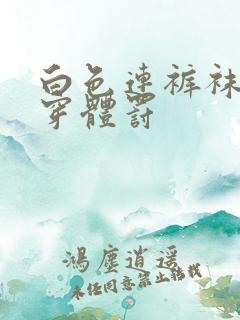 白色连裤袜
穿體罰
鴻塵逍遥
未经同意禁止转载